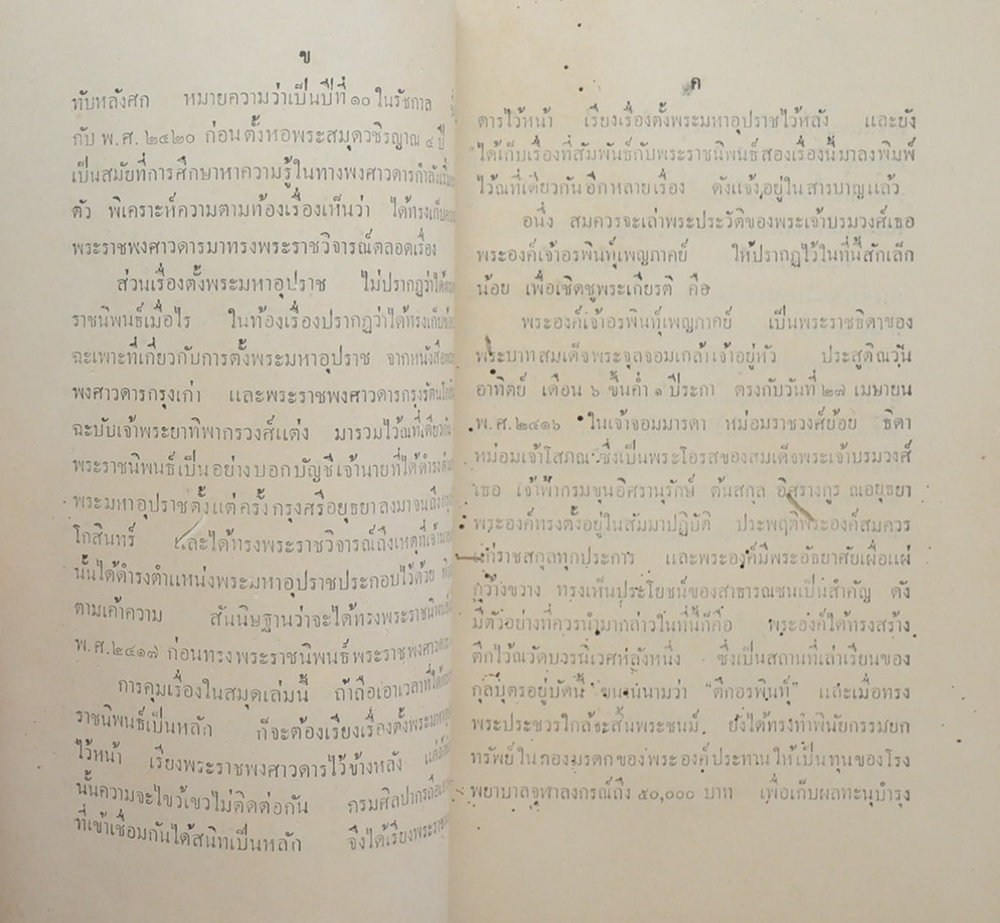 ข
ทับหลังศก หมายความว่าเป็นปีที่ ๑๐ ในรัชกาล
กับ พ.ศ. ๒๔๒๐ ก่อนตั้งหอพระสมุดวชิรญาณ ๔ ปี
เป็นสมัยที่การศึกษาหาความรู้ในทางพงศาวดารกำลัง
ตัว พิเคราะห์ความตามท้องเรื่องเห็นว่า ได้ทรงเก็บ
พระราชพงศาวดารมาทรงพระราชวิจารณ์ตลอดเรื่อง
ส่วนเรื่องตั้งพระมหาอุปราช ไม่ปรากฏว่าได้
ราชนิพนธ์เมื่อไร ในท้องเรื่องปรากฏว่าได้ทรงเก็บ
ฉะเพาะที่เกี่ยวกับการตั้งพระมหาอุปราช จากหนังสือ
พงศาวดารกรุงเก่า และพระราชพงศาวดารกรุง
ฉะบับเจ้าพระยาทิพากรวงศ์แต่ง มารวมไว้ณที่เดียว
พระราชนิพนธ์เป็นอย่างบอกบัญชีเจ้านายที่ได้ดำรง
พระมหาอุปราชตั้งแต่ครั้งกรุงศรีอยุธยาลงมาจนถึง
โกสินทร์ และได้ทรงพระราชวิจารณ์ถึงเหตุที่
นั้นได้ดำรงตำแหน่งพระมหาอุปราชประกอบไว้ด้วย
ตามเค้าความ สันนิษฐานว่าจะได้ทรงพระราชนิพนธ์
พ.ศ.๒๔๑๗ ก่อนทรงพระราชนิพนธ์พระราชพงศาวดาร
การคุมเรื่องในสมุดเล่มนี้ ถ้าถือเอาเวลาที่ได้
ราชนิพนธ์เป็นหลัก ก็จะต้องเรียงเรื่องตั้งพระมหา
ไว้หน้า เรียงพระราชพงศาวดารไว้ข้างหลัง
นั้นความจะไขว้เขวไม่ติดต่อกัน กรมศิลปากร
ที่เข้าเชื่อมกันได้สนิทเป็นหลัก จึงได้เรียงพระราช
ค
ดารไว้หน้า เรียงเรื่องตั้งพระมหาอุปราชไว้หลัง และยัง
ได้เก็บเรื่องที่สัมพันธ์กับพระราชนิพนธ์สองเรื่องนี้มาลงพิมพ์
ไว้ณที่เดียวกันอีกหลายเรื่อง ดังแจ้งอยู่ในสารบาญแล้ว
อนึ่ง สมควรจะเล่าพระประวัติของพระเจ้าบรมวงศ์เธอ
พระองค์เจ้าอรพินทุ์เพญภาคย์ ให้ปรากฏไว้ในที่นี้สักเล็ก
น้อย เพื่อเชิดชูพระเกียรติ คือ
พระองค์เจ้าอรพินทุ์เพญภาคย์ เป็นพระราชธิดาของ
พระบาทสมเด็จพระจุลจอมเกล้าเจ้าอยู่หัว ประสูติณวัน
อาทิตย์ เดือน ๖ ขึ้นค่ำ ๑ ปีระกา ตรงกับวันที่ ๒๗ เมษายน
พ.ศ.๒๔๑๖ ในเจ้าจอมมารดา หม่อมราชวงศ์ย้อย ธิดา
หม่อมเจ้าโสภณ ซึ่งเป็นพระโอรสของสมเด็จพระเจ้าบรมวงศ์
เธอ เจ้าฟ้ากรมขุนอิศรานุรักษ์ ต้นสกุล อิศรางกูร ณอยุธยา
พระองค์ทรงตั้งอยู่ในสัมมาปฏิบัติ ประพฤติพระองค์สมควร
แก่ราชสกุลทุกประการ และพระองค์มีพระอัธยาศัยเผื่อแผ่
กว้างขวาง ทรงเห็นประโยชน์ของสาธารณชนเป็นสำคัญ ดัง
มีตัวอย่างที่ควรนำมากล่าวในที่นี้ก็คือ พระองค์ได้ทรงสร้าง
ตึกไว้ณวัดบวรนิเวศหลังหนึ่ง ซึ่งเป็นสถานที่เล่าเรียนของ
กุลบุตรอยู่บัดนี้ ขนานนามว่า “ตึกอรพินทุ์” และเมื่อทรง
พระประชวรใกล้จะสิ้นพระชนม์ ยังได้ทรงทำพินัยกรรมยก
ทรัพย์ในกองมรดกของพระองค์ประทานให้เป็นทุนของโรง
พยาบาลจุฬาลงกรณ์ถึง ๕๐,๐๐๐ บาท เพื่อเก็บผลทะนุบำรุง